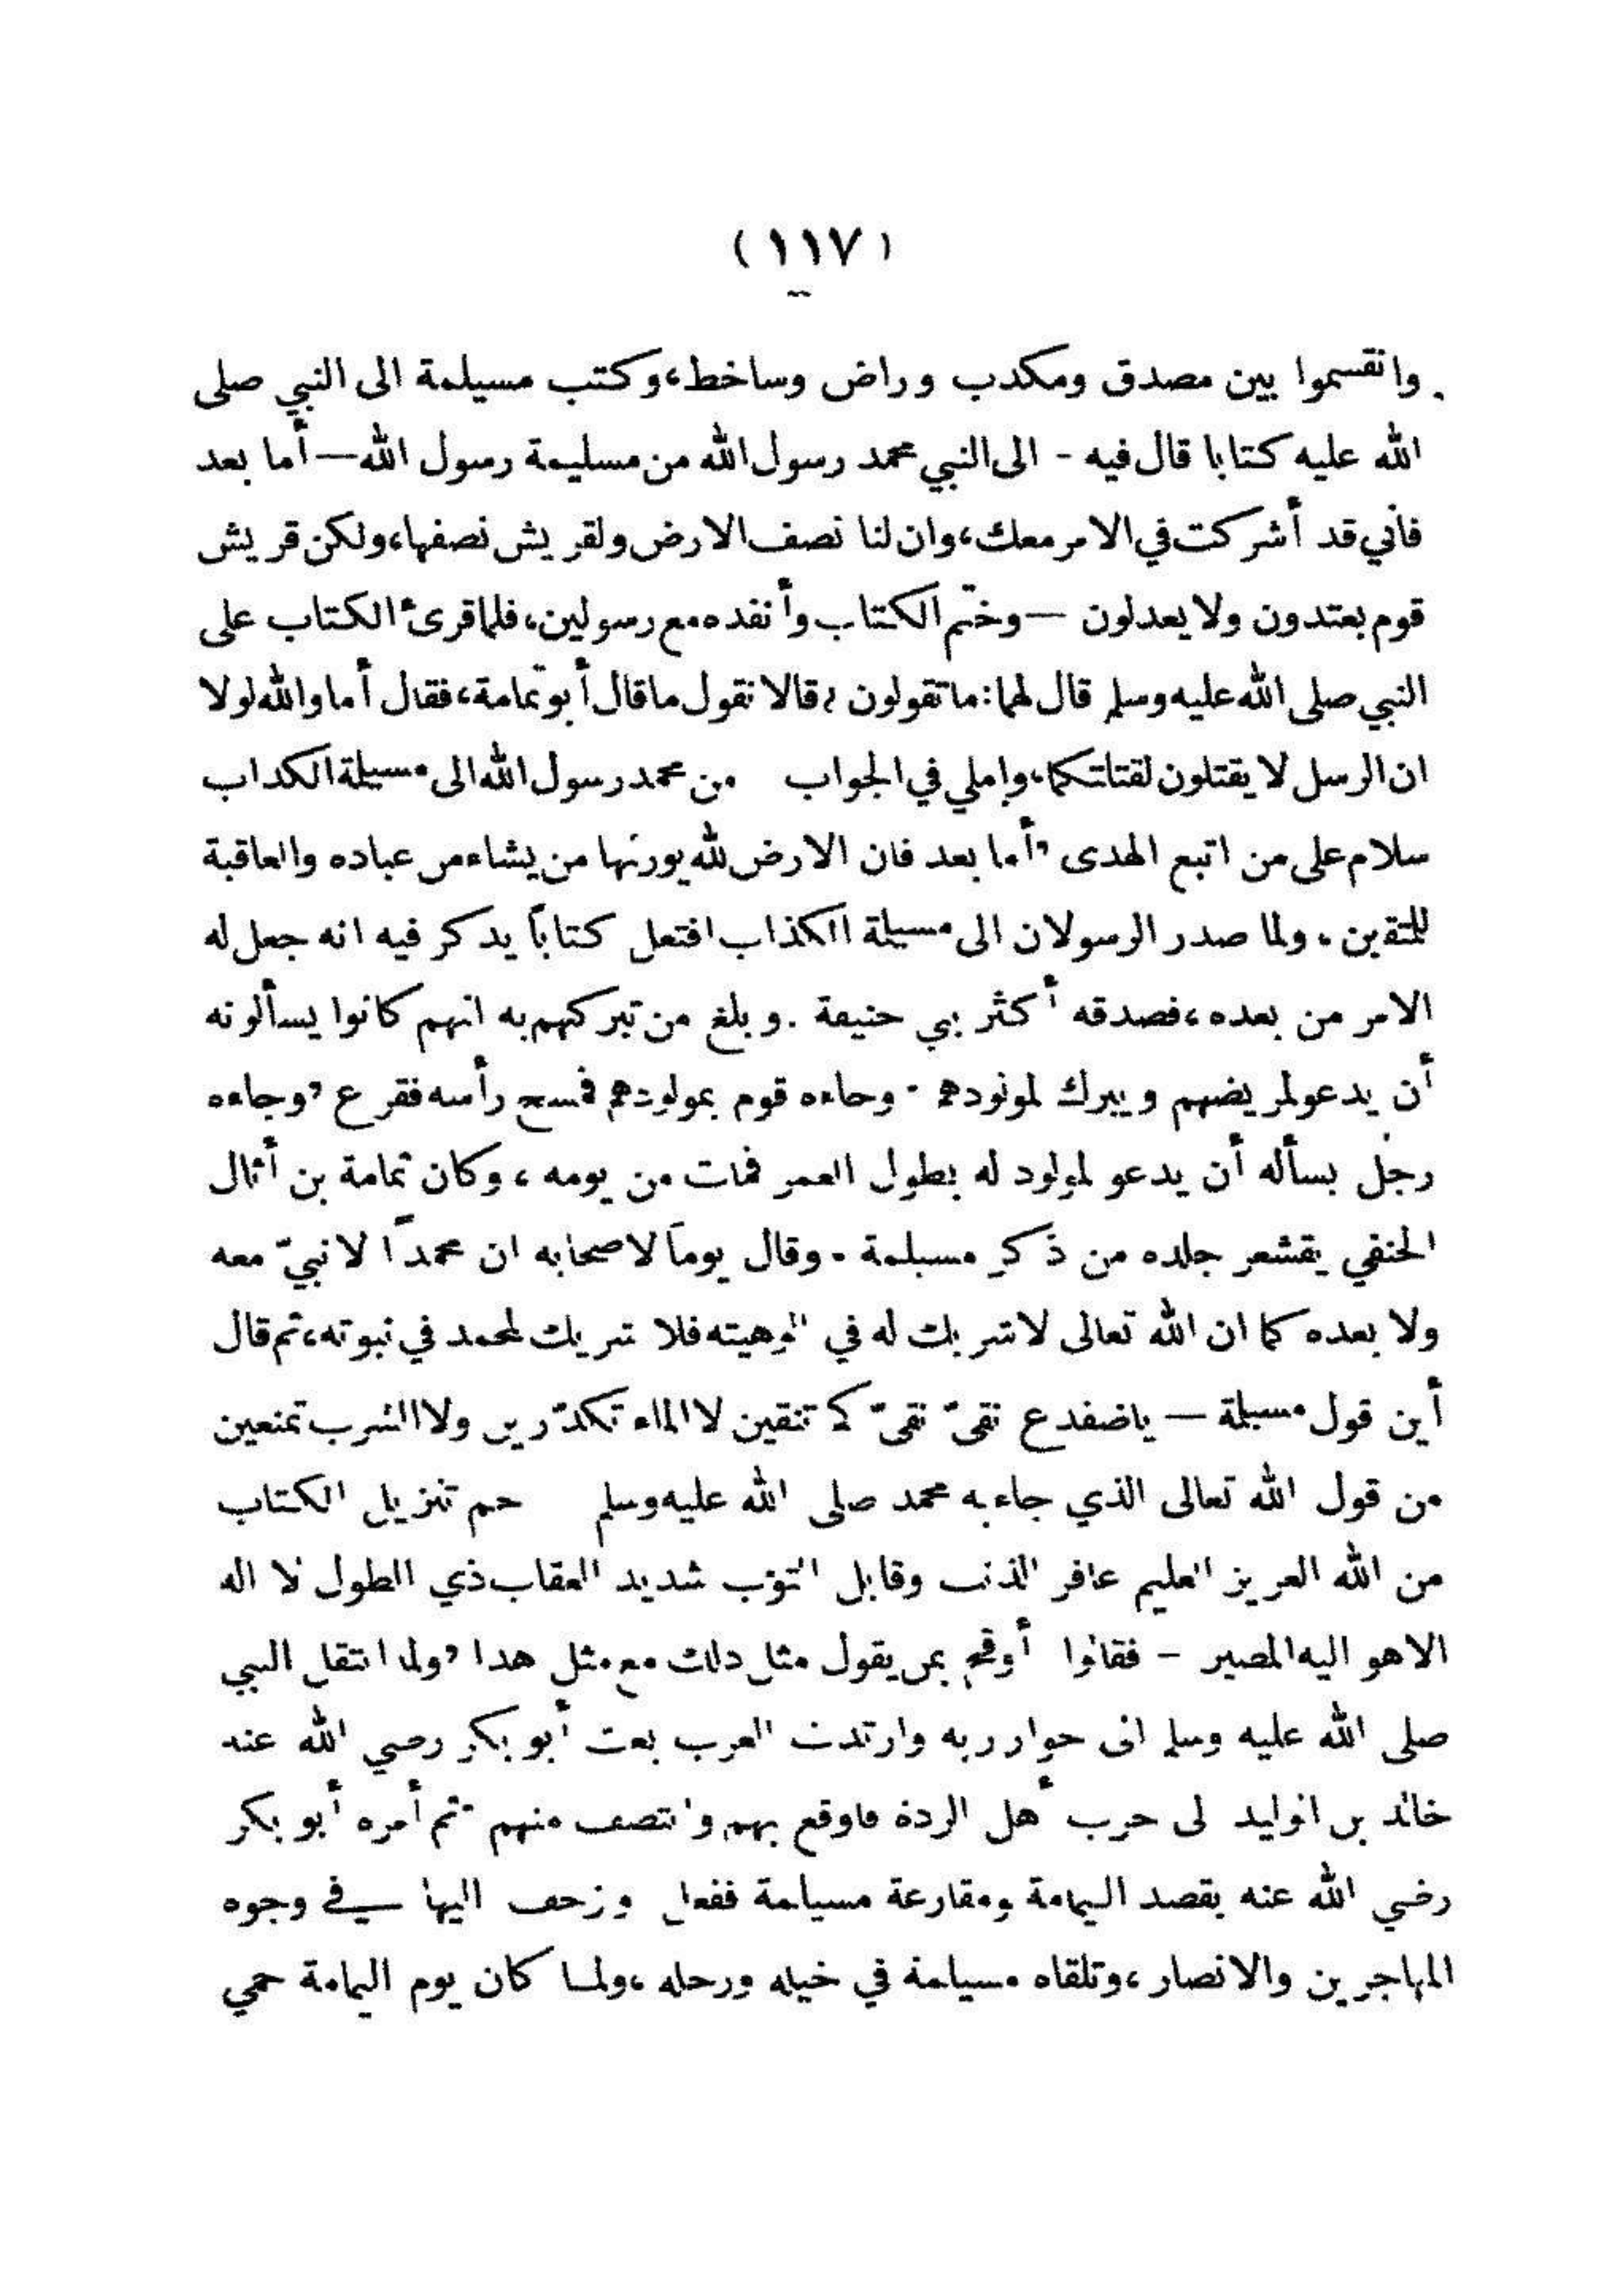 (١١٧)
وانقسموا بين مصدق ومكذب وراض وساخط، وكتب مسيلمة الى النبي صلى
الله عليه كتابا قال فيه - الى النبي محمد رسول الله من مسليمة رسول الله — أما بعد
فأني قد أشركت في الامر معك، وان لنا نصف الارض ولقريش نصفها، ولكن قريش
قوم يعتدون ولا يعدلون — وختم الكتاب وأنفذه مع رسولين، فلما قرىء الكتاب على
النبي صلى الله عليه وسلم قال لهما: ما تقولون ؟ قالا نقول ما قال أبو ثمامة، فقال أما والله لولا
ان الرسل لا يقتلون لقتلتكما، وإملي في الجواب من محمد رسول الله الى مسيلمة الكذاب
سلام على من اتبع الهدى، أما بعد فان الارض لله يورثها من يشاء من عباده والعاقبة
للمتقين. ولما صدر الرسولان الى مسيلمة الكذاب افتعل كتاباً يذكر فيه انه جعل له
الامر من بعده، فصدقه أكثر بني حنيفة. وبلغ من تبركهم به انهم كانوا يسألونه
أن يدعو لمريضهم ويبرك لمولودهم. وجاءه قوم بمولودهم فمسح رأسه فقرع، وجاءه
رجل يسأله أن يدعو لمولود له بطول العمر فمات من يومه، وكان ثمامة بن أثال
الحنفي يقشعر جلده من ذكر مسيلمة. وقال يوماً لاصحابه ان محمداً لا نبيّ معه
ولا بعده كما ان الله تعالى لا شريك له في الوهيته فلا شريك لمحمد في نبوته، ثم قال
أين قول مسيلمة — ياضفدع نقيّ نقيّ كم تنقين لا الماء تكدّرين ولا الشرب تمنعين
من قول الله تعالى الذي جاء به محمد صلى الله عليه وسلم حم تنزيل الكتاب
من الله العزيز العليم غافر الذنب وقابل التوب شديد العقاب ذي الطول لا اله
الا هو اليه المصير - فقالوا أوقح بمن يقول مثل ذلك مع مثل هذا، ولما انتقل النبي
صلى الله عليه وسلم الى جوار ربه وارتدت العرب بعث أبو بكر رضي الله عنه
خالد بن الوليد لى حرب أهل الردة فاوقع بهم وانتصف منهم. ثم أمره أبو بكر
رضي الله عنه بقصد اليمامة ومقارعة مسيلمة ففعل وزحف اليها في وجوه
المهاجرين والانصار، وتلقاه مسيلمة في خيله ورجله، ولما كان يوم اليمامة حمي